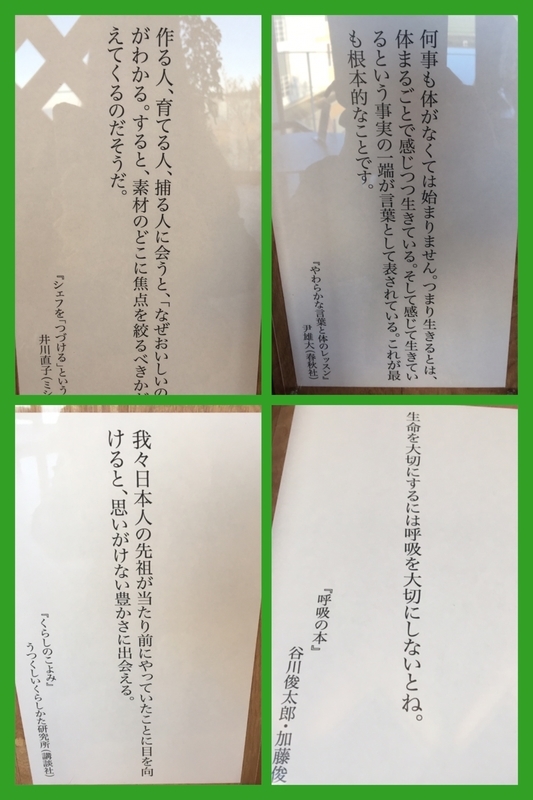 作る人、育てる人、捕る人に会うと、「なぜおいしいの
がわかる。すると、素材のどこに焦点を絞るべきか
えてくるのだそうだ。
『シェフを「つづける」という
井川直子(ミシ
何事も体がなくては始まりません。つまり生きるとは、
体まるごとで感じつつ生きている。そして感じて生きてい
るという事実の一端が言葉として表されている。これが最
も根本的なことです。
『やわらかな言葉と体のレッスン』
尹雄大(春秋社)
我々日本人の先祖が当たり前にやっていたことに目を向
けると、思いがけない豊かさに出会える。
『くらしのこよみ』
うつくしいくらしかた研究所(講談社)
生命を大切にするには呼吸を大切にしないとね。
『呼吸の本』
谷川俊太郎・加藤俊